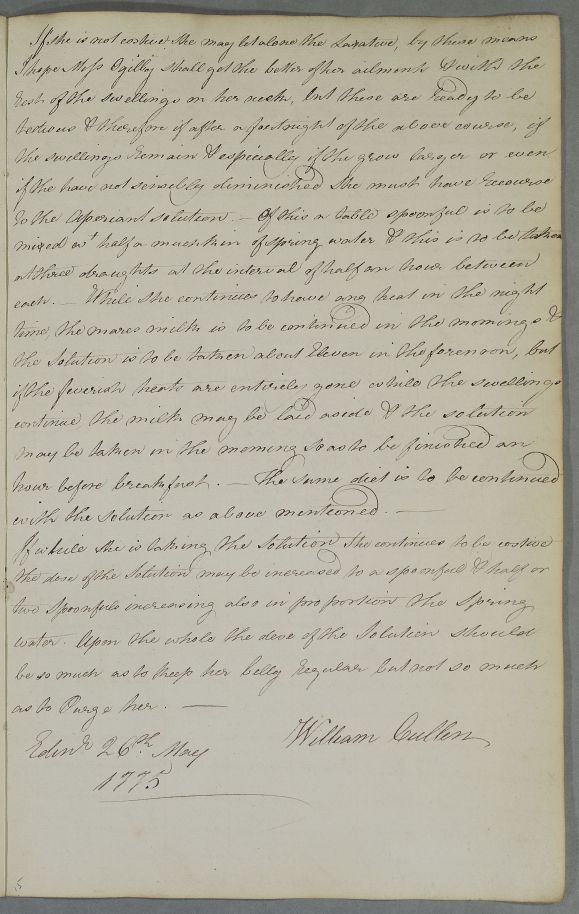 If she is not costive she may let alone the Laxative, by these means
I hope Miss Ogilvy shall get the better of her ailment & with the
rest of the swellings in her neck, but these are ready to be
tedious & therefore if after a fortnight of the above course, if
the swellings remain & especially if the grow larger or even
if the have not sensibly diminished she must have recourse
to the Aperient solution. — Of this a table spoonful is to be
mixed wt half a mutchkin of spring water & this is to be taken
at three draughts at the interval of half an hour between
each. — While she continues to have any heat in the night
time, the mares milk is to be continued in the mornings &
the Solution is to be taken about Eleven in the forenoon, but
if the feverish heats are entirely gone while the swellings
continue the milk may be laid aside & the solution
may be taken in the morning so as to be finished an
hour before breakfast. — The same diet is to be continued
with the solution as above mentioned. —
If while she is taking the solution she continues to be costive
the dose of the Solution may be increased to a spoonful & half or
two spoonfuls increasing also in proportion the Spring
water. Upon the whole the dose of the Solution should
be so much as to keep her belly regular but not so much
as to Purge her. —
William Cullen
Edinr 26th May
1775